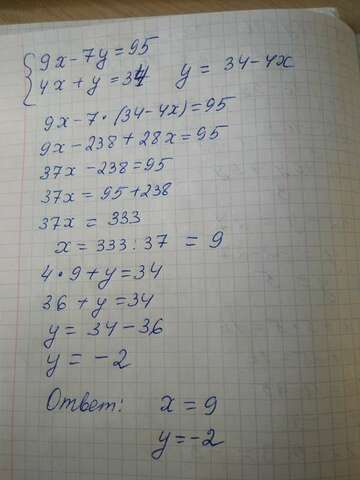 9x - 7y = 95
4x + y = 34 y = 34 - 4x
9x - 7 · (34 - 4x) = 95
9x - 238 + 28x = 95
37x - 238 = 95
37x = 95 + 238
37x = 333
x = 333 : 37 = 9
4 · 9 + y = 34
36 + y = 34
y = 34 - 36
y = -2
Ответ: x = 9
y = -2